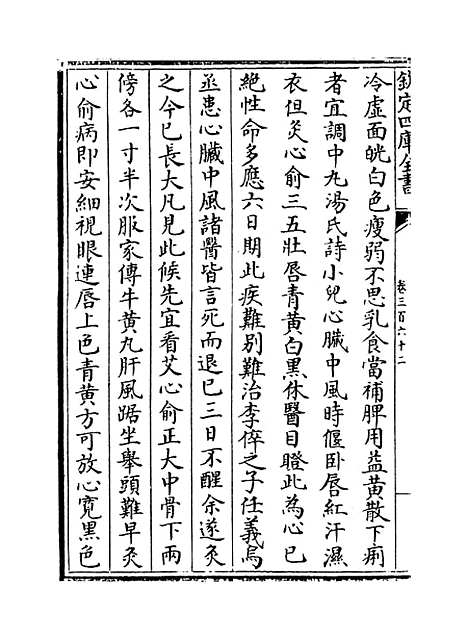 欽定四庫全書
卷三百六十二
冷虚面㿠白色瘦弱不思乳食當補脾用益黄散下痢
者宜調中丸湯氏詩小兒心臟中風時偃卧唇紅汗濕
衣但灸心俞三五壯唇青黄白黑休醫目瞪此為心已
絶性命多應六日期此疾難别難治李倅之子任義烏
丞患心臟中風諸醫皆言死而退已三日不醒余遂灸
之今已長大凡見此候先宜看艾心俞正大中骨下兩
傍各一寸半次服家傳牛黄丸肝風踞坐舉頭難早灸
心俞病即安細視眼連唇上色青黄方可放心寛黑色